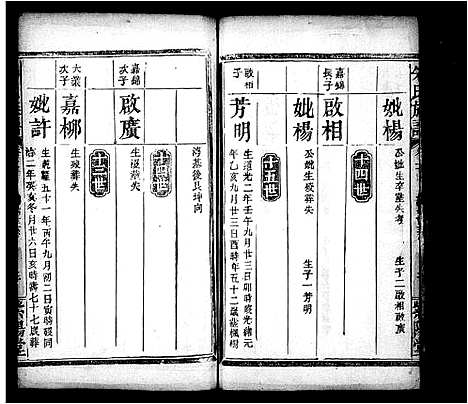 妣楊
公妣生卒塟失考
生子二啟相啟廣
十四世
嘉錦長子
啟相
妣楊
公妣生歿葬失
生子一芳明
十五世
啟相子
芳明
生道光二年壬午九月廿三日卯時歿光緒元
年乙亥九月廿三日酉時年五十二歲塟楊樹
灣基後艮坤向
嘉錦次子
啟廣
生歿葬失
十三世
大榮次子
嘉梛
生歿葬失
妣許
生乾隆五十一年丙午九月初二日寅時歿同
治二年癸亥冬月廿六日亥時壽七十七歲葬
紫陽堂